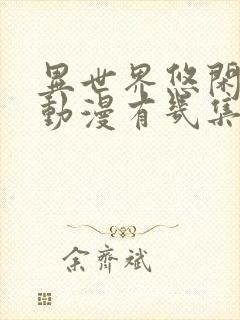 異世界悠閑
動漫有幾集
余齊斌